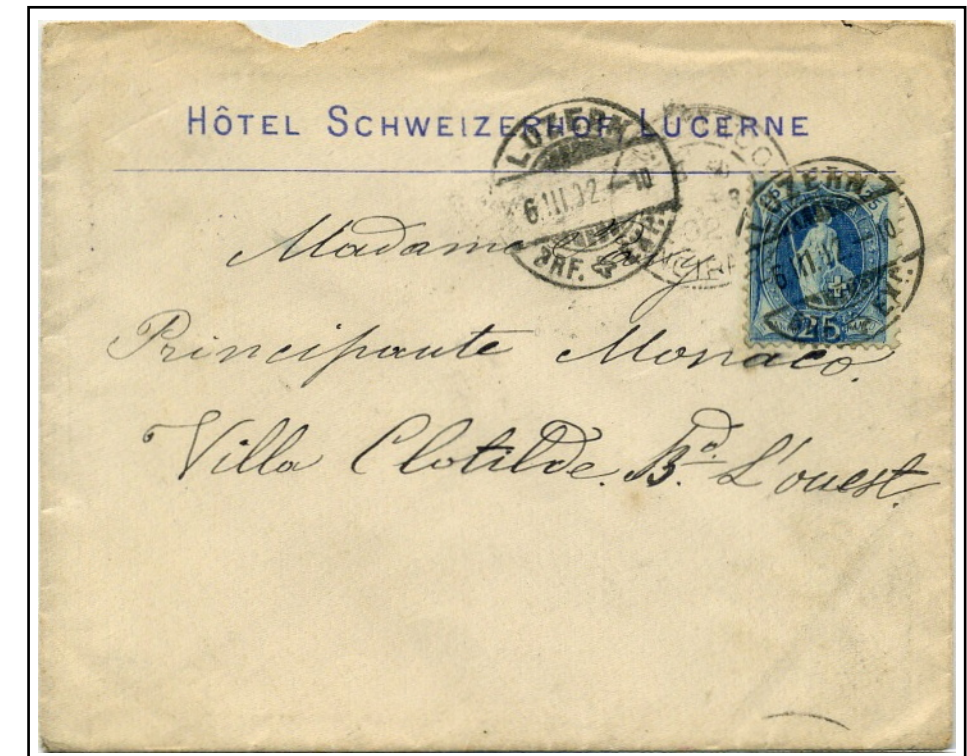 HÔTEL SCHWEIZERHOF LUCERNE
LUZERN
6.III.02.-10
BRF. EXP.
LUZERN
6.III.02.-10
EXP.
25
Madame
Principaute Monaco.
Villa Clotilde. Bd. L'ouest.